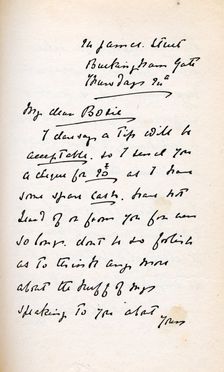 James. Street
Buckingham Gate
Thursday
My dear Bosie
I daresay a tip will be
acceptable. so I send you
a cheque for as I have
some spare cash. have not
heard of or from you for
so long. dont be so foolish
as to think any more
about the stuff of my
speaking to you about
yours